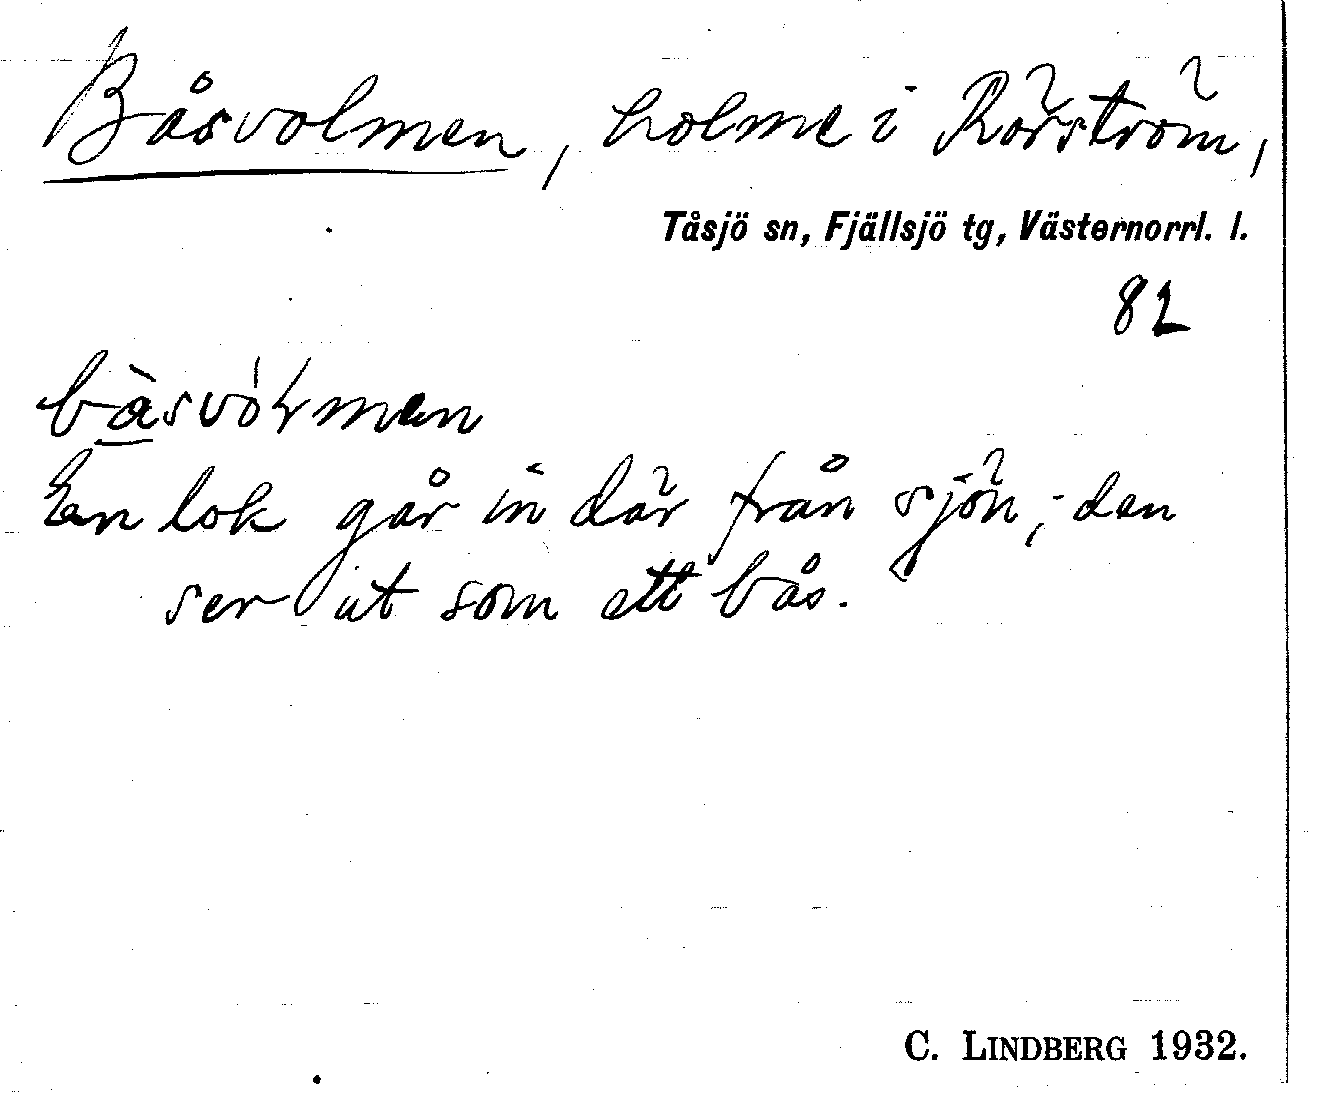 Båsvolmen, holme i Rörström,
Tåsjö sn, Fjällsjö tg, Västernorrl. l.
82
En lok går in där från sjön, den
ser ut som ett bås.
C. LINDBERG 1932.